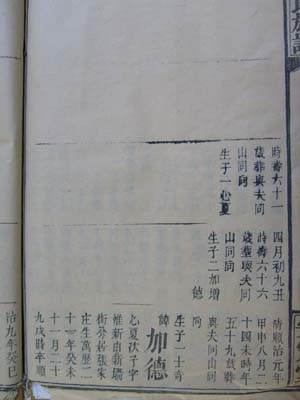 族譜
時壽六十一
歲葬與夫同
山同向
生子一心夏
四月初九丑
時壽六十六
歲葬與夫同
山同向
生子二加增
德
時順治元年
甲申八月二
十四未時年
五十九歲葬
與夫同山同
向
生子一士奇
加德
諱
心夏次子字
惟新自新
街分居張家
庄生萬曆二
十一年癸未
十一月二十
九戌時卒順
治九年癸巳